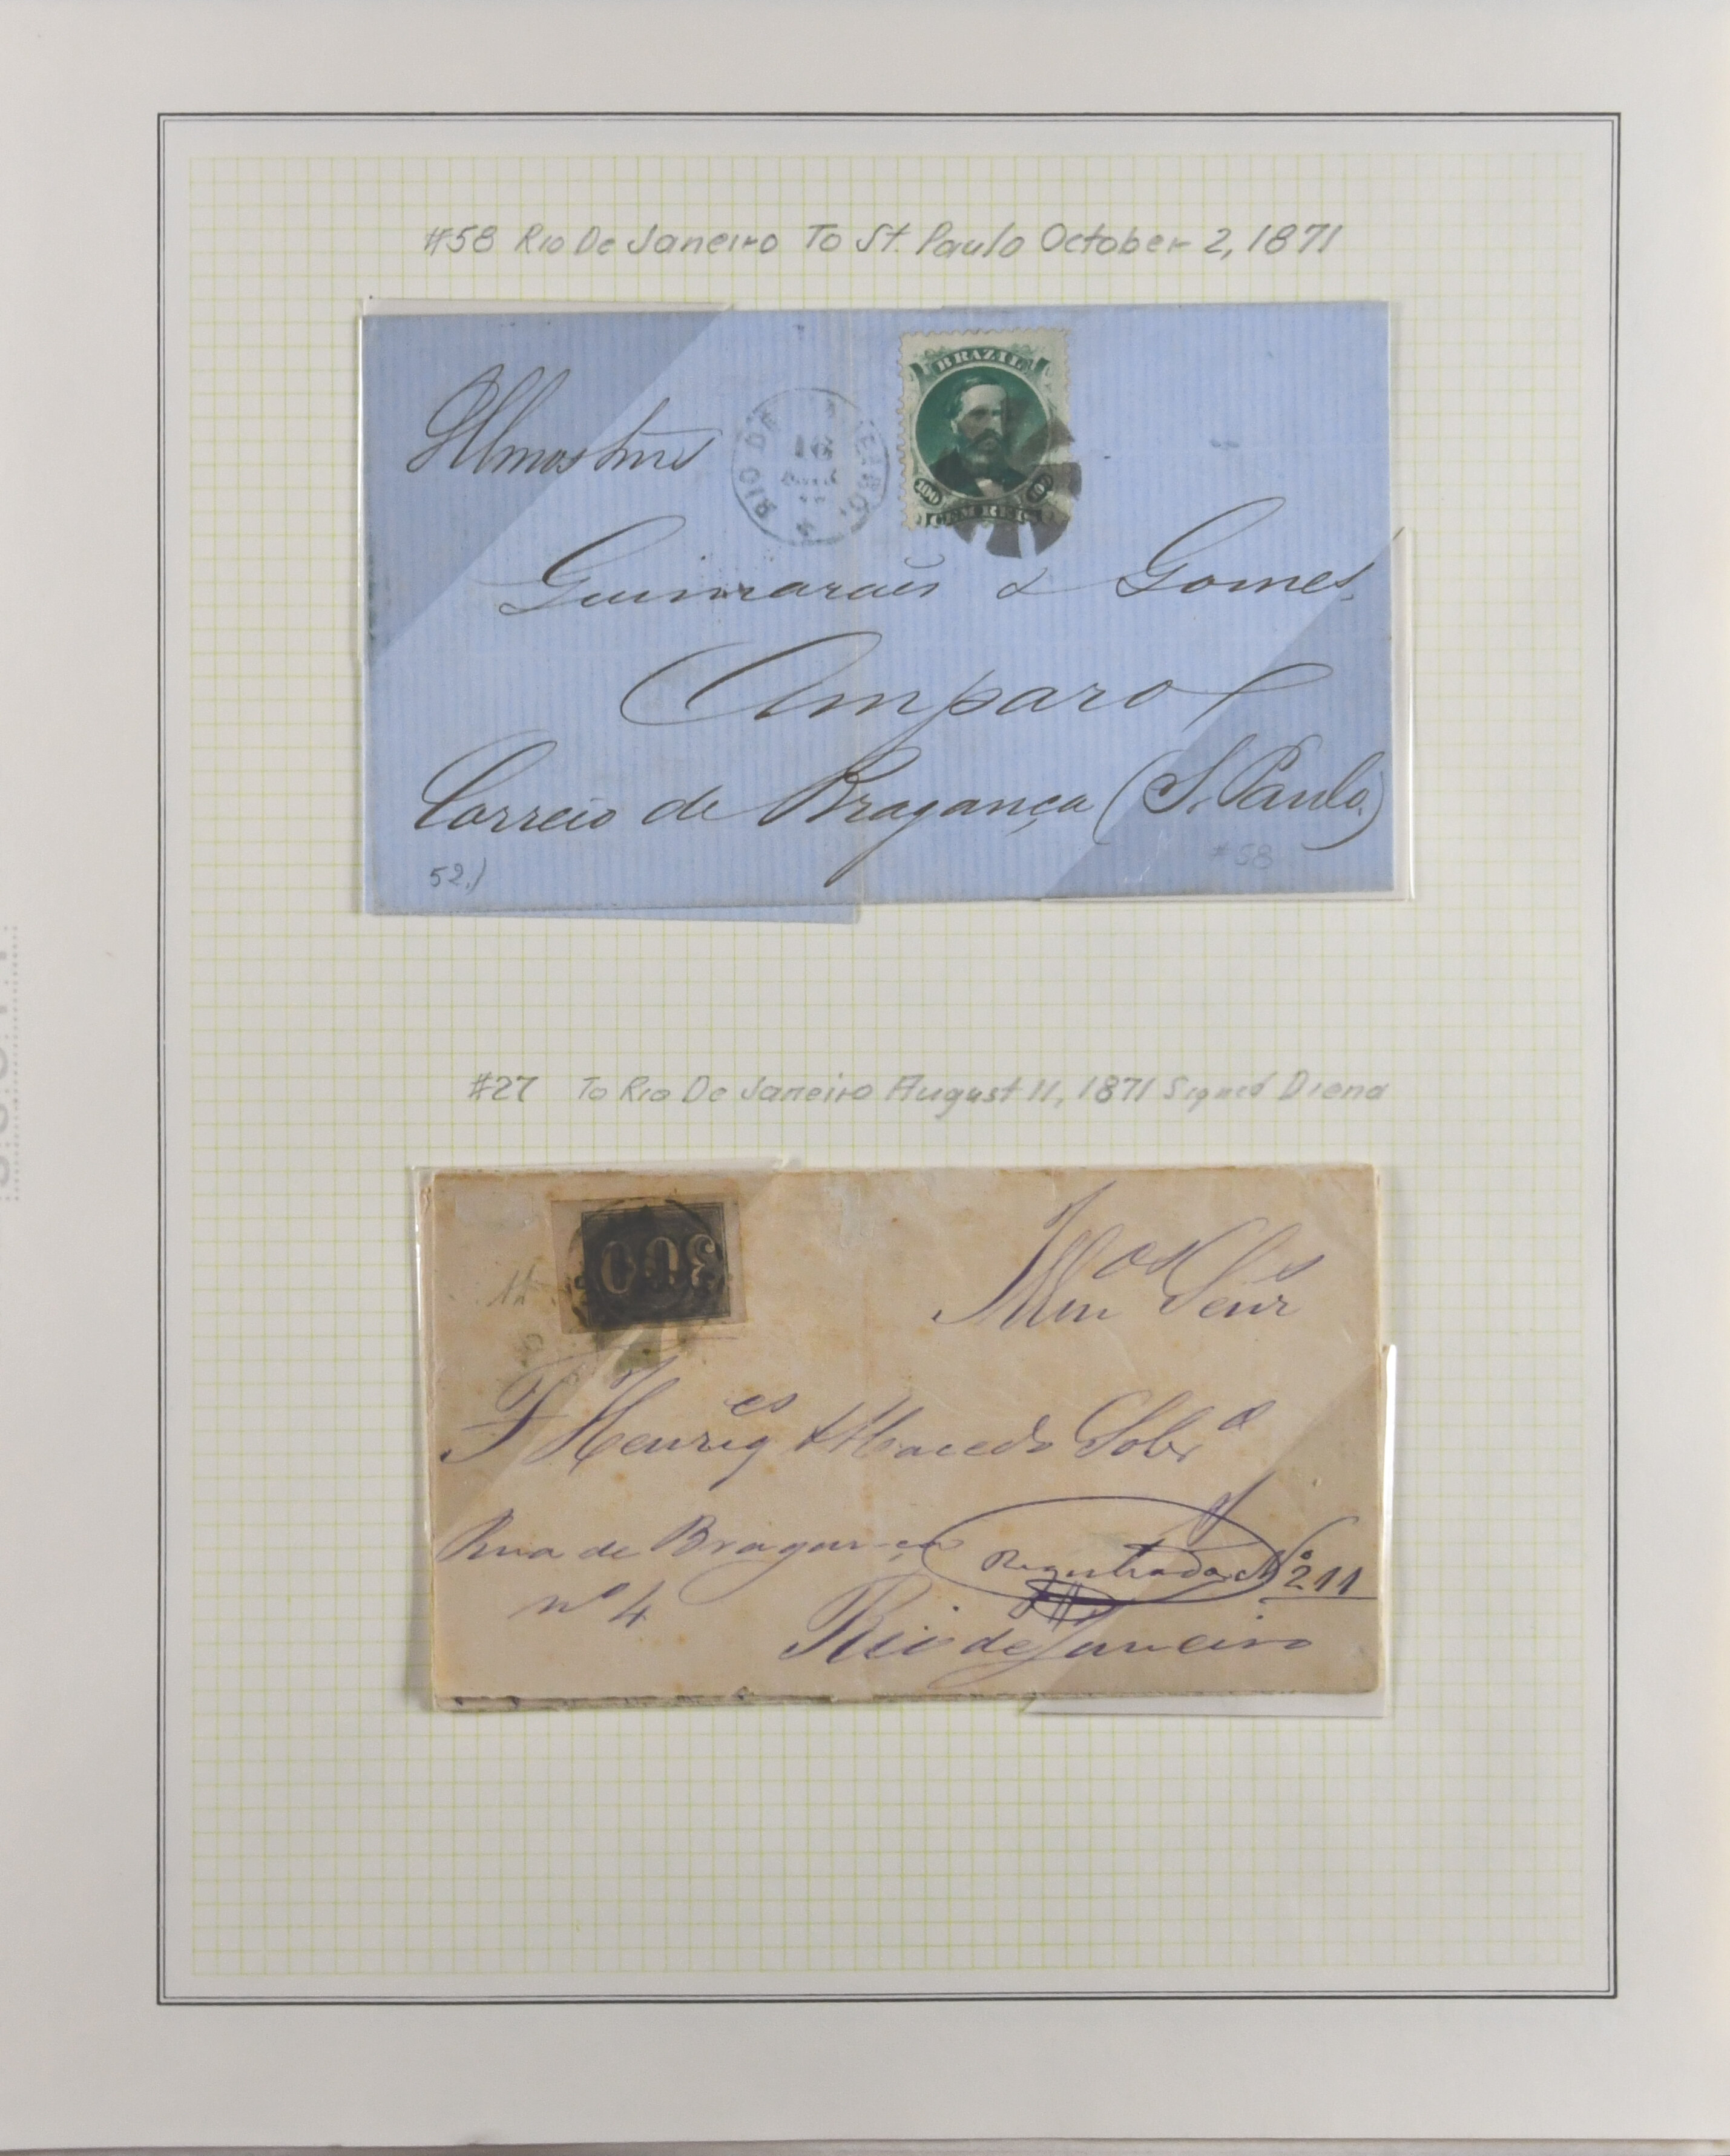 #58 Rio De Janeiro To St. Paulo October 2, 1871
BRAZIL
RIO DE
100
CEM REIS
Guimarães & Gomes.
Amparo
Correio de Bragança (S. Paulo.)
52.)
#58
#27 To Rio De Janeiro August 11, 1871 Signed Diena
300
Illmos Senrs
F Henriqes & Macedo Sobro
Rua de Bragança
Registrada No 211
no 4
Rio de Janeiro